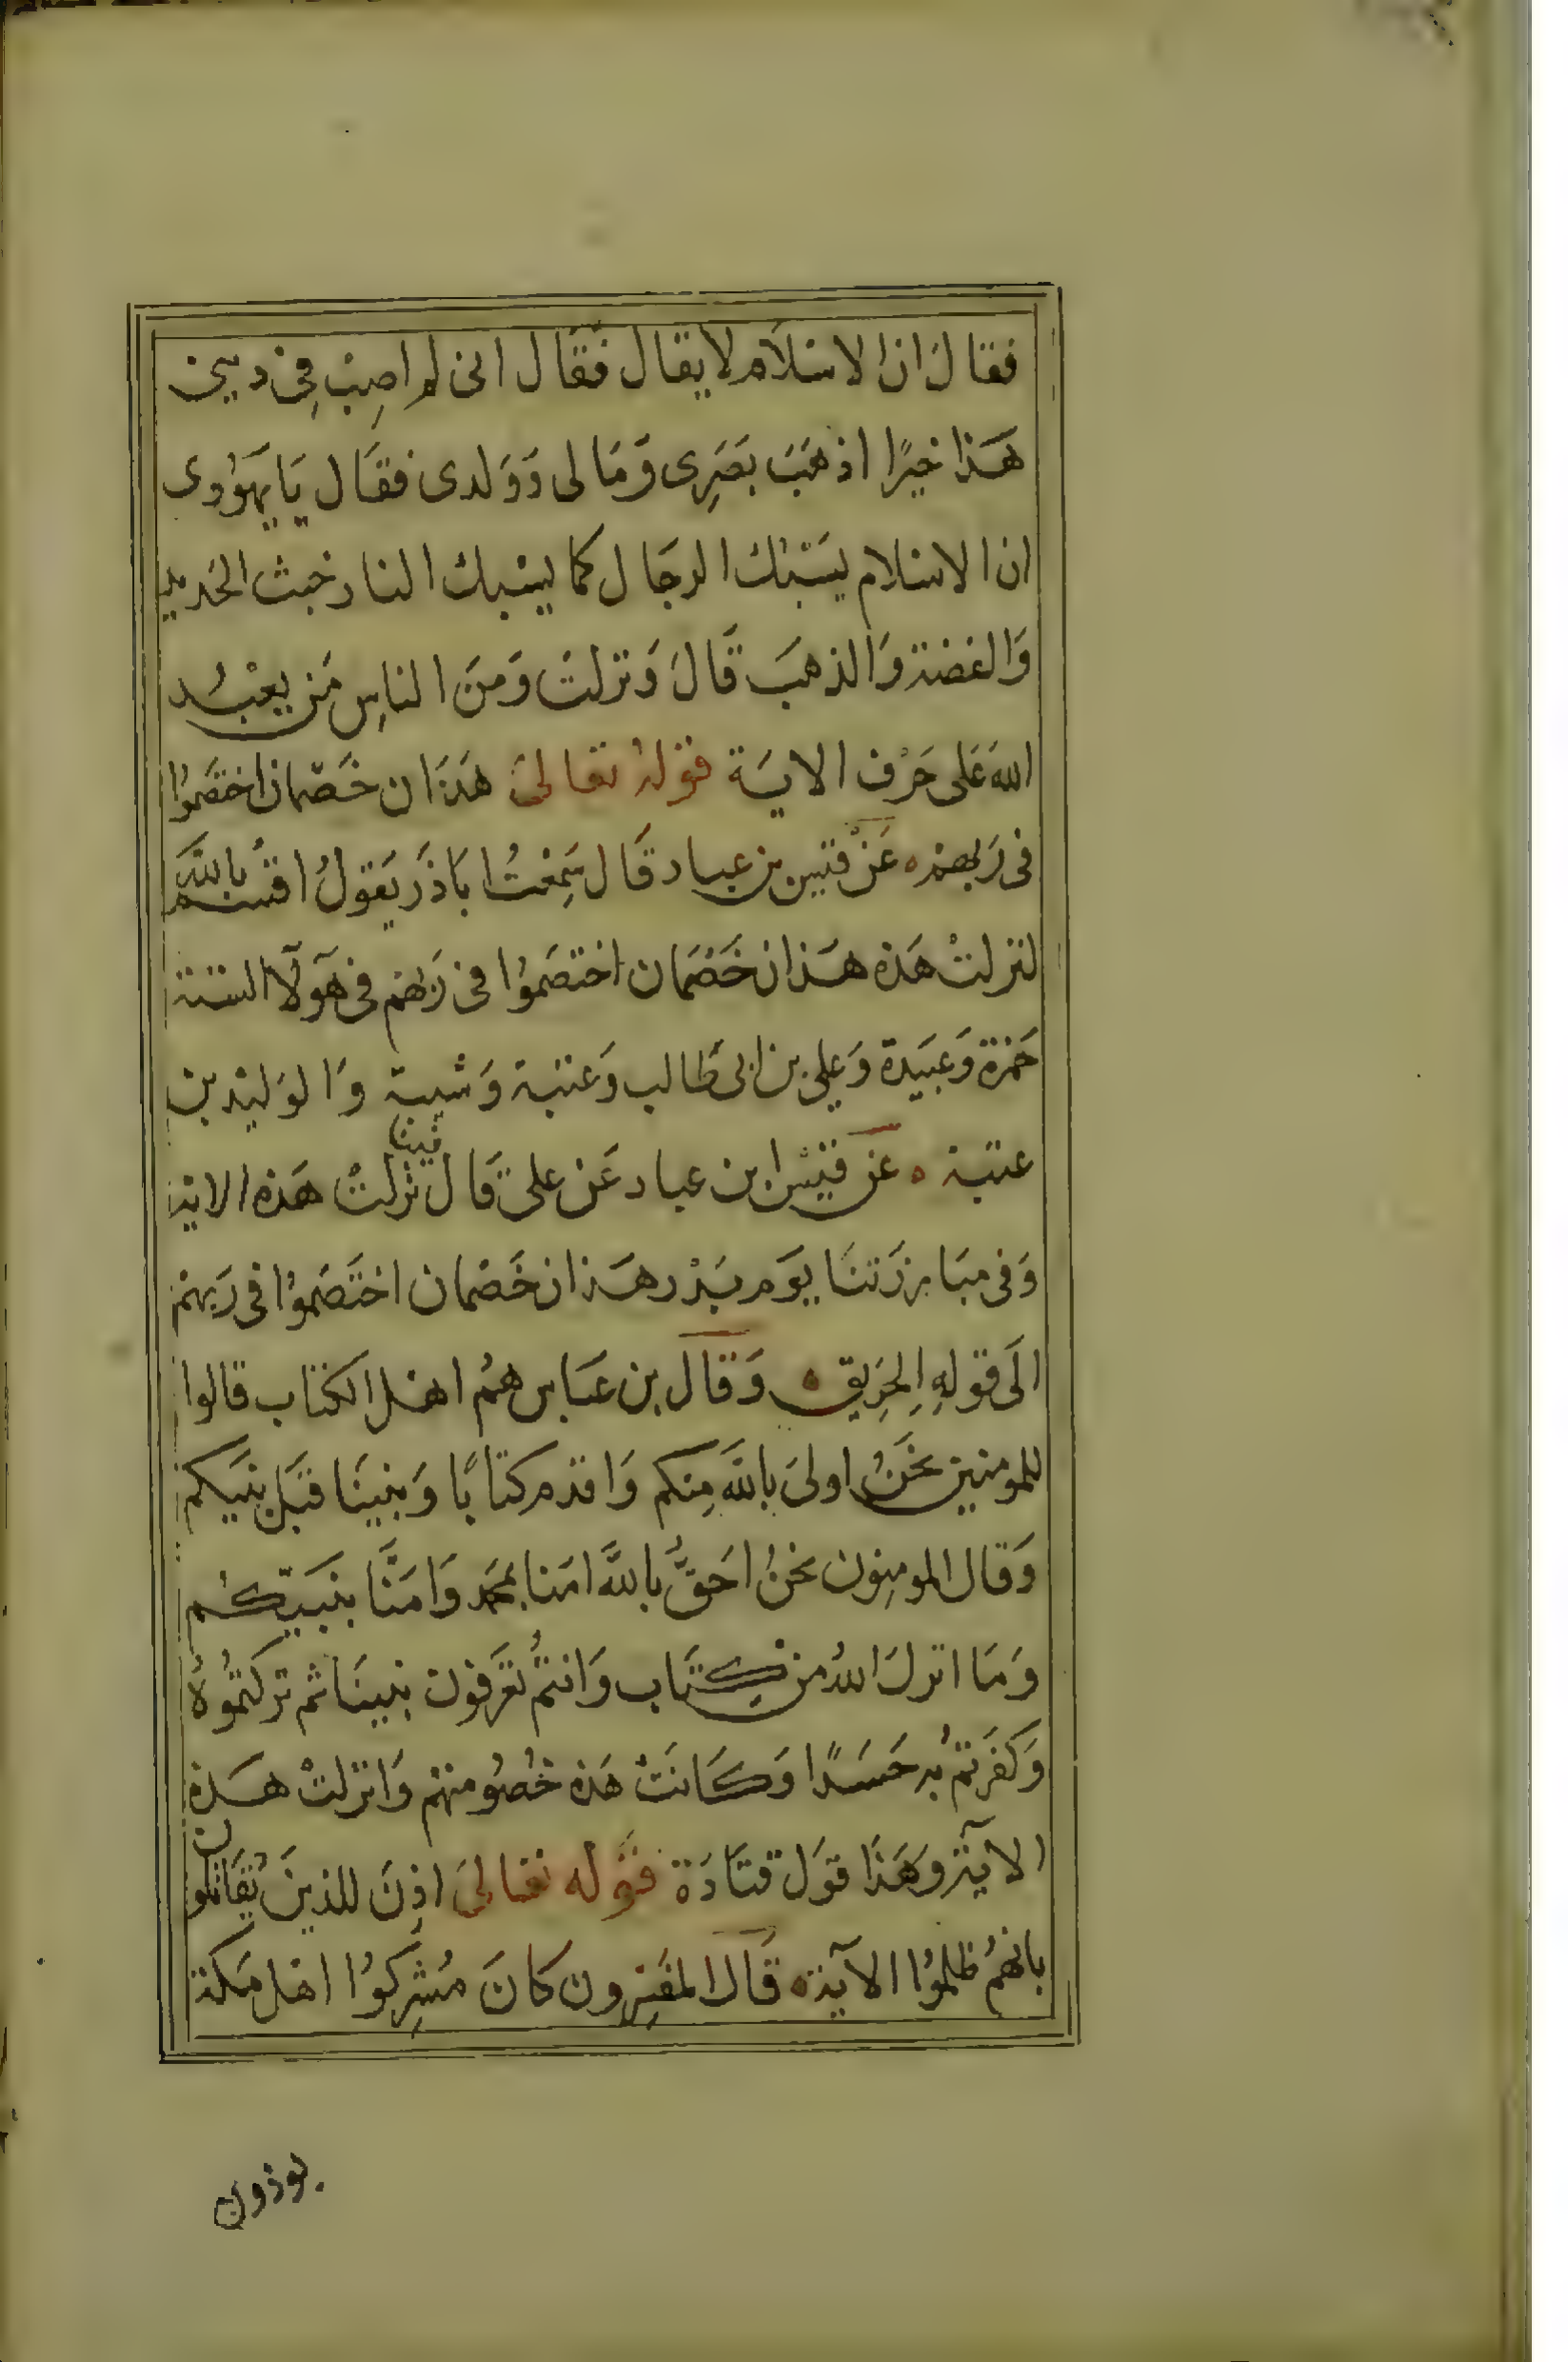 فقالَ ان الاسلام لا يقال فقال انى لم اصِبْ فِى دينى
هَذا خيرًا اذهَبَ بَصَرِى وَمَا لى وَوَلدى فقَال يَا يهَوُدى
ان الاسلام يَسْبْك الرجَال كما يسْبك النار خبث الحديد
وَالفضة وَالذهبَ قَالَ وَنزلتْ وَمنَ الناسِ مَن يعبُد
الله عَلى حَرْف الايَة قوْلهُ تعَالىَ هَذَان خَصْمان اختَصَموُا
فى رَبهمْ ه عَنْ قيس بن عباد قَال سَمِعْتُ ابَا ذَر يَقولُ اقسُم باللهَ
لنزلتْ هَذه هَذان خَصْمَان اختصَموُا فى رَبهْم فى هَوٓلآ الستة
حَمزة وَعبَيدة وَعلِى بن ابى طَالب وَعتبَة وَشيبة وَالوَليْد بن
عتبة ه عَن قيسْ ابن عباد عَن علىّ قَال نزلتْ فينا هَذه الاية
وَفى مبَا رزَتنَا يوَم بَدْر هَذان خَصْمان اختَصَموُا فى رَبهمْ
الَى قولهِ الحَرِيق ه وَقالَ بن عَباس همُ اهْل الكتاب قالوا
للمومنين نحَنُ اولىَ باللهَ مِنكم وَاقدم كتابًا وَنبينَا قبَل نبيَكم
وَقال المومِنون نحنُ احَقُّ باللهَ امَنا بمحَمد وَامَنَّا بنبَيّكُم
وَمَا انزلَ اللهُ من كِتَاب وَانتمُ تعَرفون نبينَا ثم تركتمُوُهُ
وَكفَرتمُ به حَسَدًا وَكَانَتْ هَذه خُصُومتهمْ وَانزلتْ هَذه
الآية وَهَذَا قوَل قتَادَة قوَله تعَالىَ اذِنَ للذينَ يُقَاتلون
بانهمُ ظلموُا الآية ه قَالَ المفَسِرون كانَ مُشِركوُا اهْل مَكة
يوذون